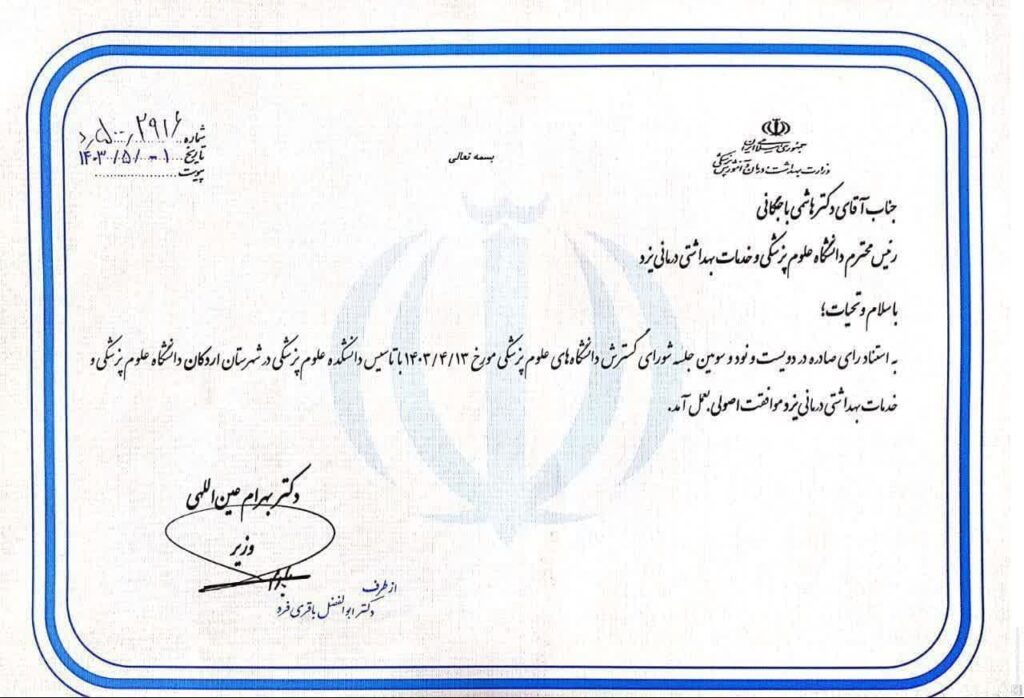 جمهوری اسلامی ایران
وزارت بهداشت، درمان و آموزش پزشکی
بسمه تعالی
شماره
تاریخ ۱۴۰۳/۵/۰۱
پیوست
جناب آقای دکتر هاشمی باجگانی
رئیس محترم دانشگاه علوم پزشکی و خدمات بهداشتی درمانی یزد
با سلام و تحیات؛
به استناد رای صادره در دویست و نود و سومین جلسه شورای گسترش دانشگاه‌های علوم پزشکی مورخ ۱۴۰۳/۴/۱۳ با تاسیس دانشکده علوم پزشکی در شهرستان اردکان دانشگاه علوم پزشکی و
خدمات بهداشتی درمانی یزد موافقت اصولی بعمل آمد.
دکتر بهرام عین اللهی
وزیر
از طرف
دکتر ابوالفضل باقری فرد